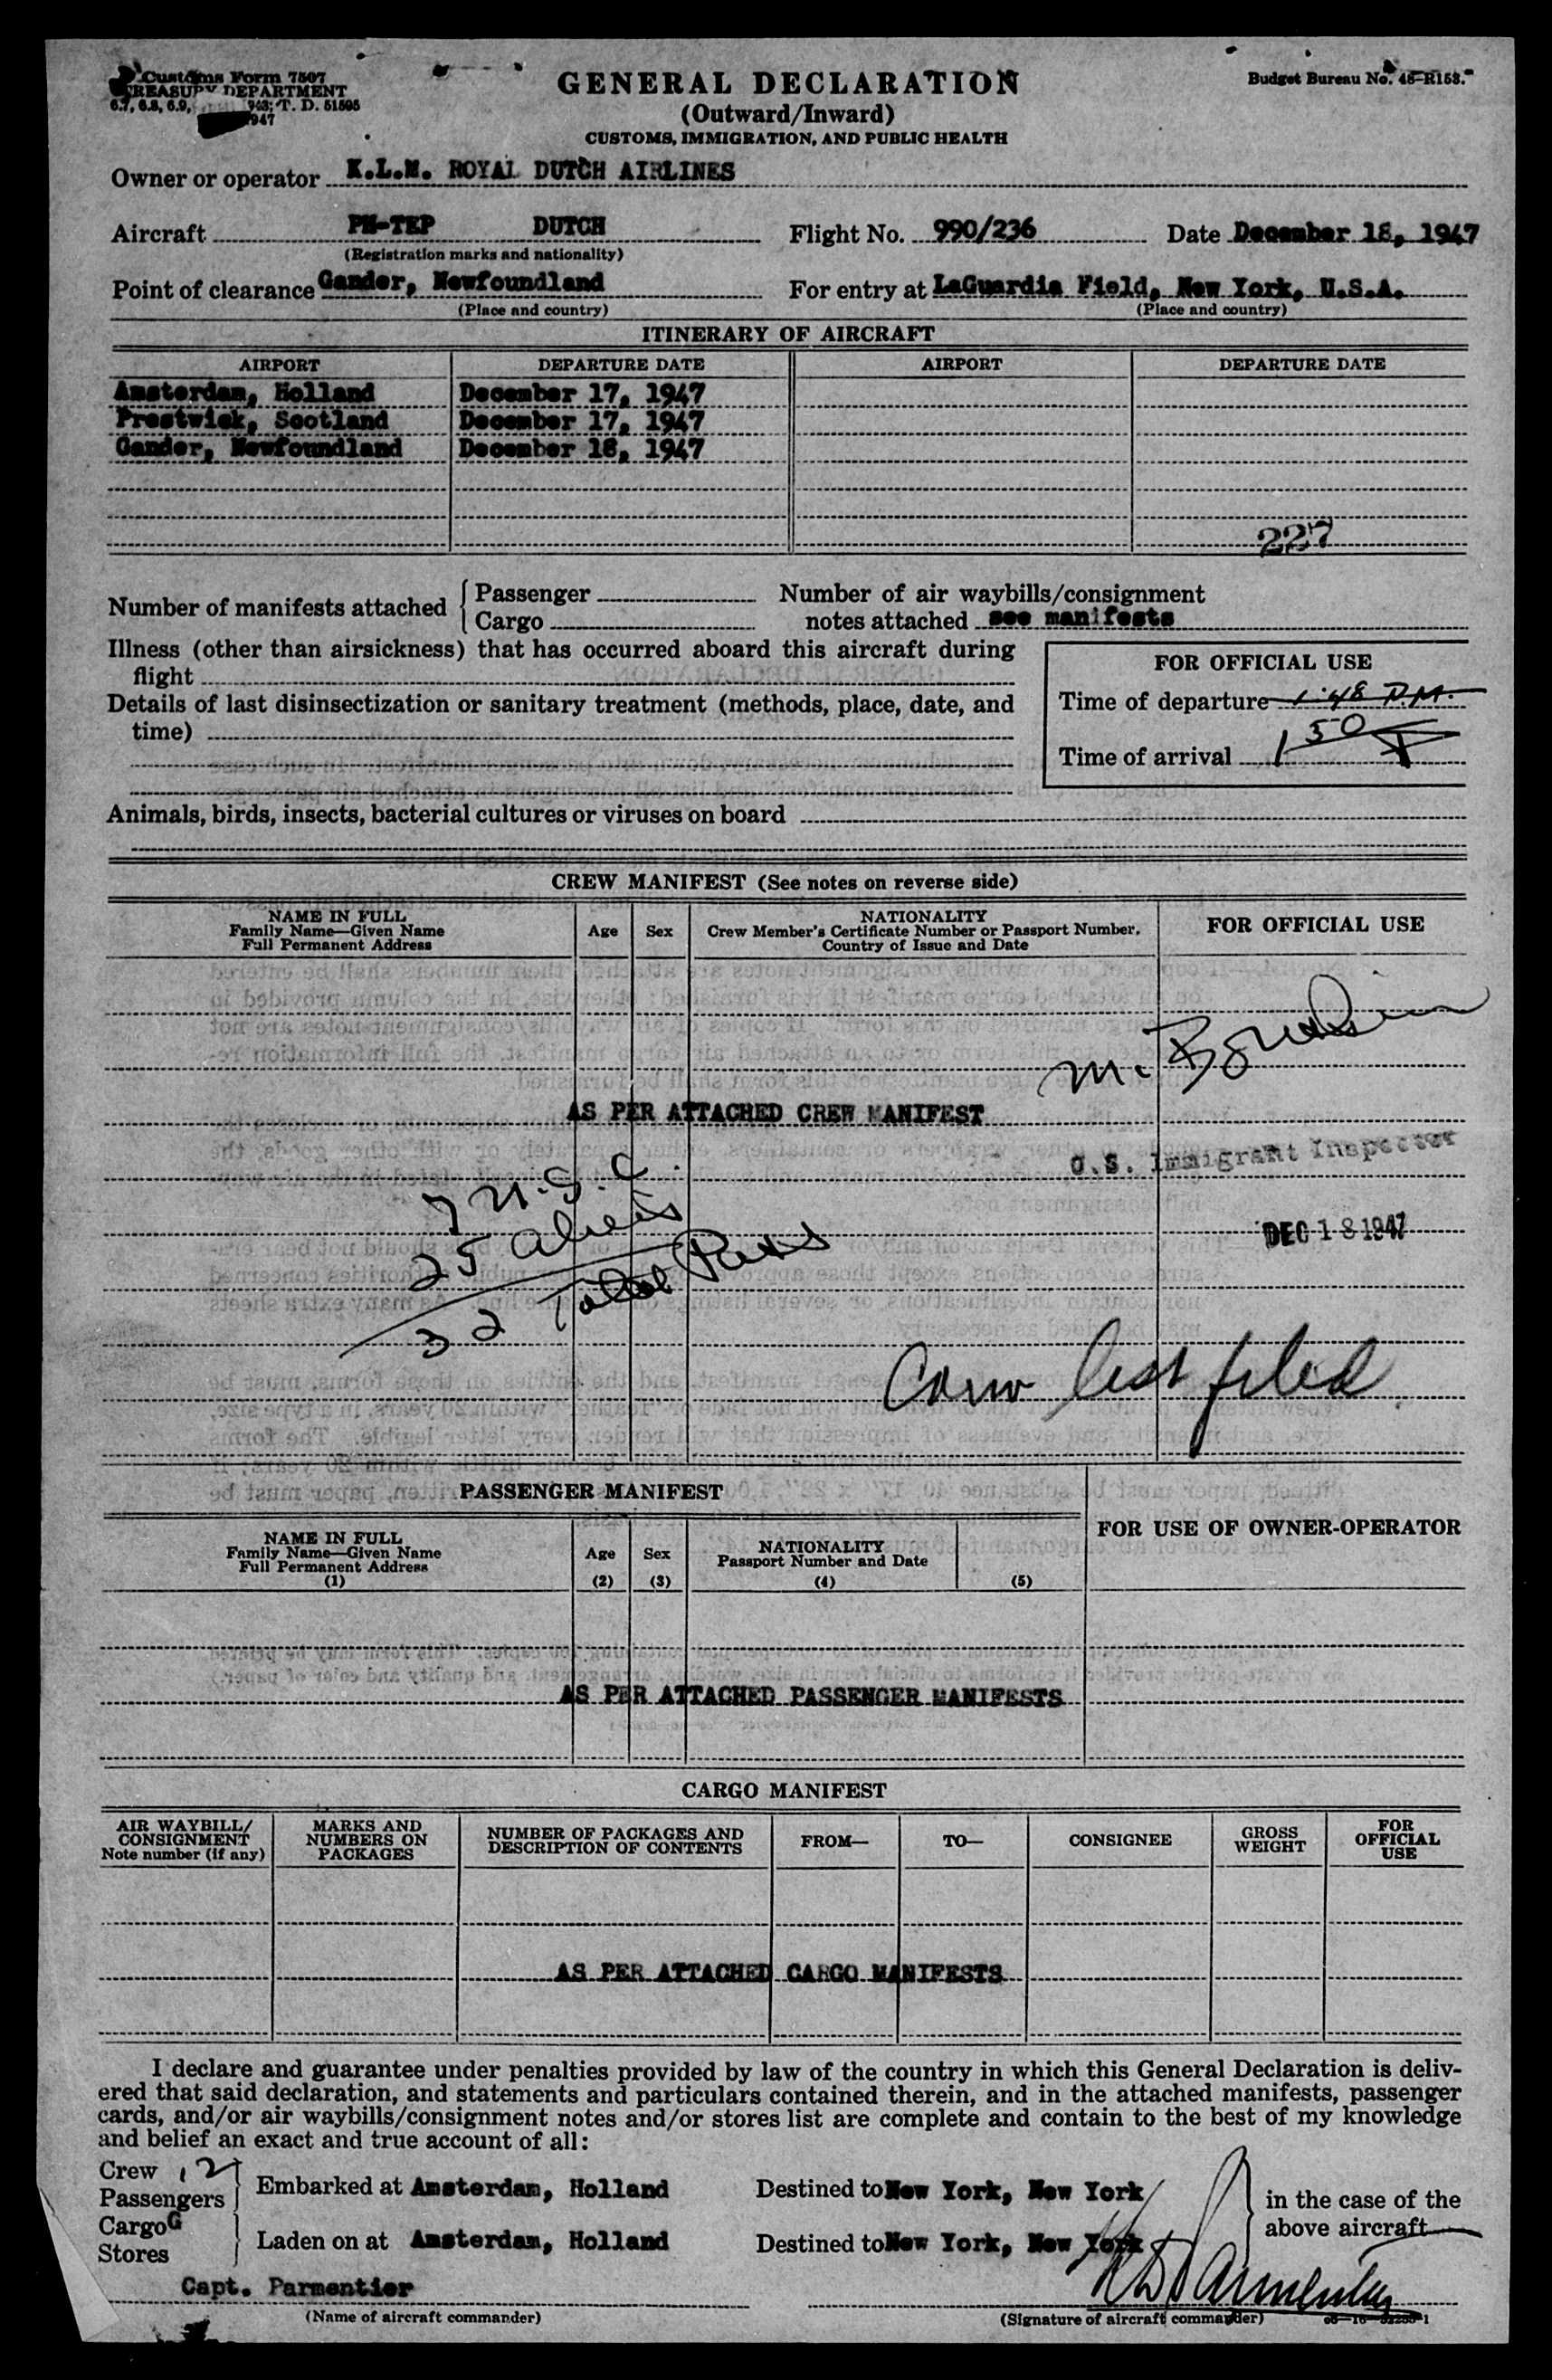 Customs Form 7507
TREASURY DEPARTMENT
6.7, 6.8, 6.9, 943; T. D. 51595
947
GENERAL DECLARATION
(Outward/Inward)
CUSTOMS, IMMIGRATION, AND PUBLIC HEALTH
Budget Bureau No. 48-R153.
Owner or operator K.L.M. ROYAL DUTCH AIRLINES
Aircraft PH-TEP DUTCH Flight No. 990/236 Date December 18, 1947
(Registration marks and nationality)
Point of clearance Gander, Newfoundland For entry at LaGuardia Field, New York, U.S.A.
(Place and country) (Place and country)
ITINERARY OF AIRCRAFT
AIRPORT DEPARTURE DATE AIRPORT DEPARTURE DATE
Amsterdam, Holland December 17, 1947
Prestwick, Scotland December 17, 1947
Gander, Newfoundland December 18, 1947
227
Number of manifests attached { Passenger Number of air waybills/consignment
Cargo notes attached see manifests
Illness (other than airsickness) that has occurred aboard this aircraft during
flight
FOR OFFICIAL USE
Details of last disinsectization or sanitary treatment (methods, place, date, and
time)
Time of departure 1:48 P.M.
Time of arrival 1 50
Animals, birds, insects, bacterial cultures or viruses on board
CREW MANIFEST (See notes on reverse side)
NAME IN FULL
Family Name—Given Name
Full Permanent Address
Age Sex
NATIONALITY
Crew Member's Certificate Number or Passport Number,
Country of Issue and Date
FOR OFFICIAL USE
M.
AS PER ATTACHED CREW MANIFEST
U.S. Immigrant Inspector
7 U.S.C.
25 Aliens
32 Total Pass
DEC 18 1947
Corw list filed
PASSENGER MANIFEST
FOR USE OF OWNER-OPERATOR
NAME IN FULL
Family Name—Given Name
Full Permanent Address
(1)
Age
(2)
Sex
(3)
NATIONALITY
Passport Number and Date
(4) (5)
AS PER ATTACHED PASSENGER MANIFESTS
CARGO MANIFEST
AIR WAYBILL/
CONSIGNMENT
Note number (if any)
MARKS AND
NUMBERS ON
PACKAGES
NUMBER OF PACKAGES AND
DESCRIPTION OF CONTENTS
FROM—
TO—
CONSIGNEE
GROSS
WEIGHT
FOR
OFFICIAL
USE
AS PER ATTACHED CARGO MANIFESTS
I declare and guarantee under penalties provided by law of the country in which this General Declaration is deliv-
ered that said declaration, and statements and particulars contained therein, and in the attached manifests, passenger
cards, and/or air waybills/consignment notes and/or stores list are complete and contain to the best of my knowledge
and belief an exact and true account of all:
Crew 12
Passengers } Embarked at Amsterdam, Holland Destined to New York, New York
Cargo G
Stores } Laden on at Amsterdam, Holland Destined to New York, New York
in the case of the
above aircraft
Capt. Parmentier
Parmentier
(Name of aircraft commander) (Signature of aircraft commander)